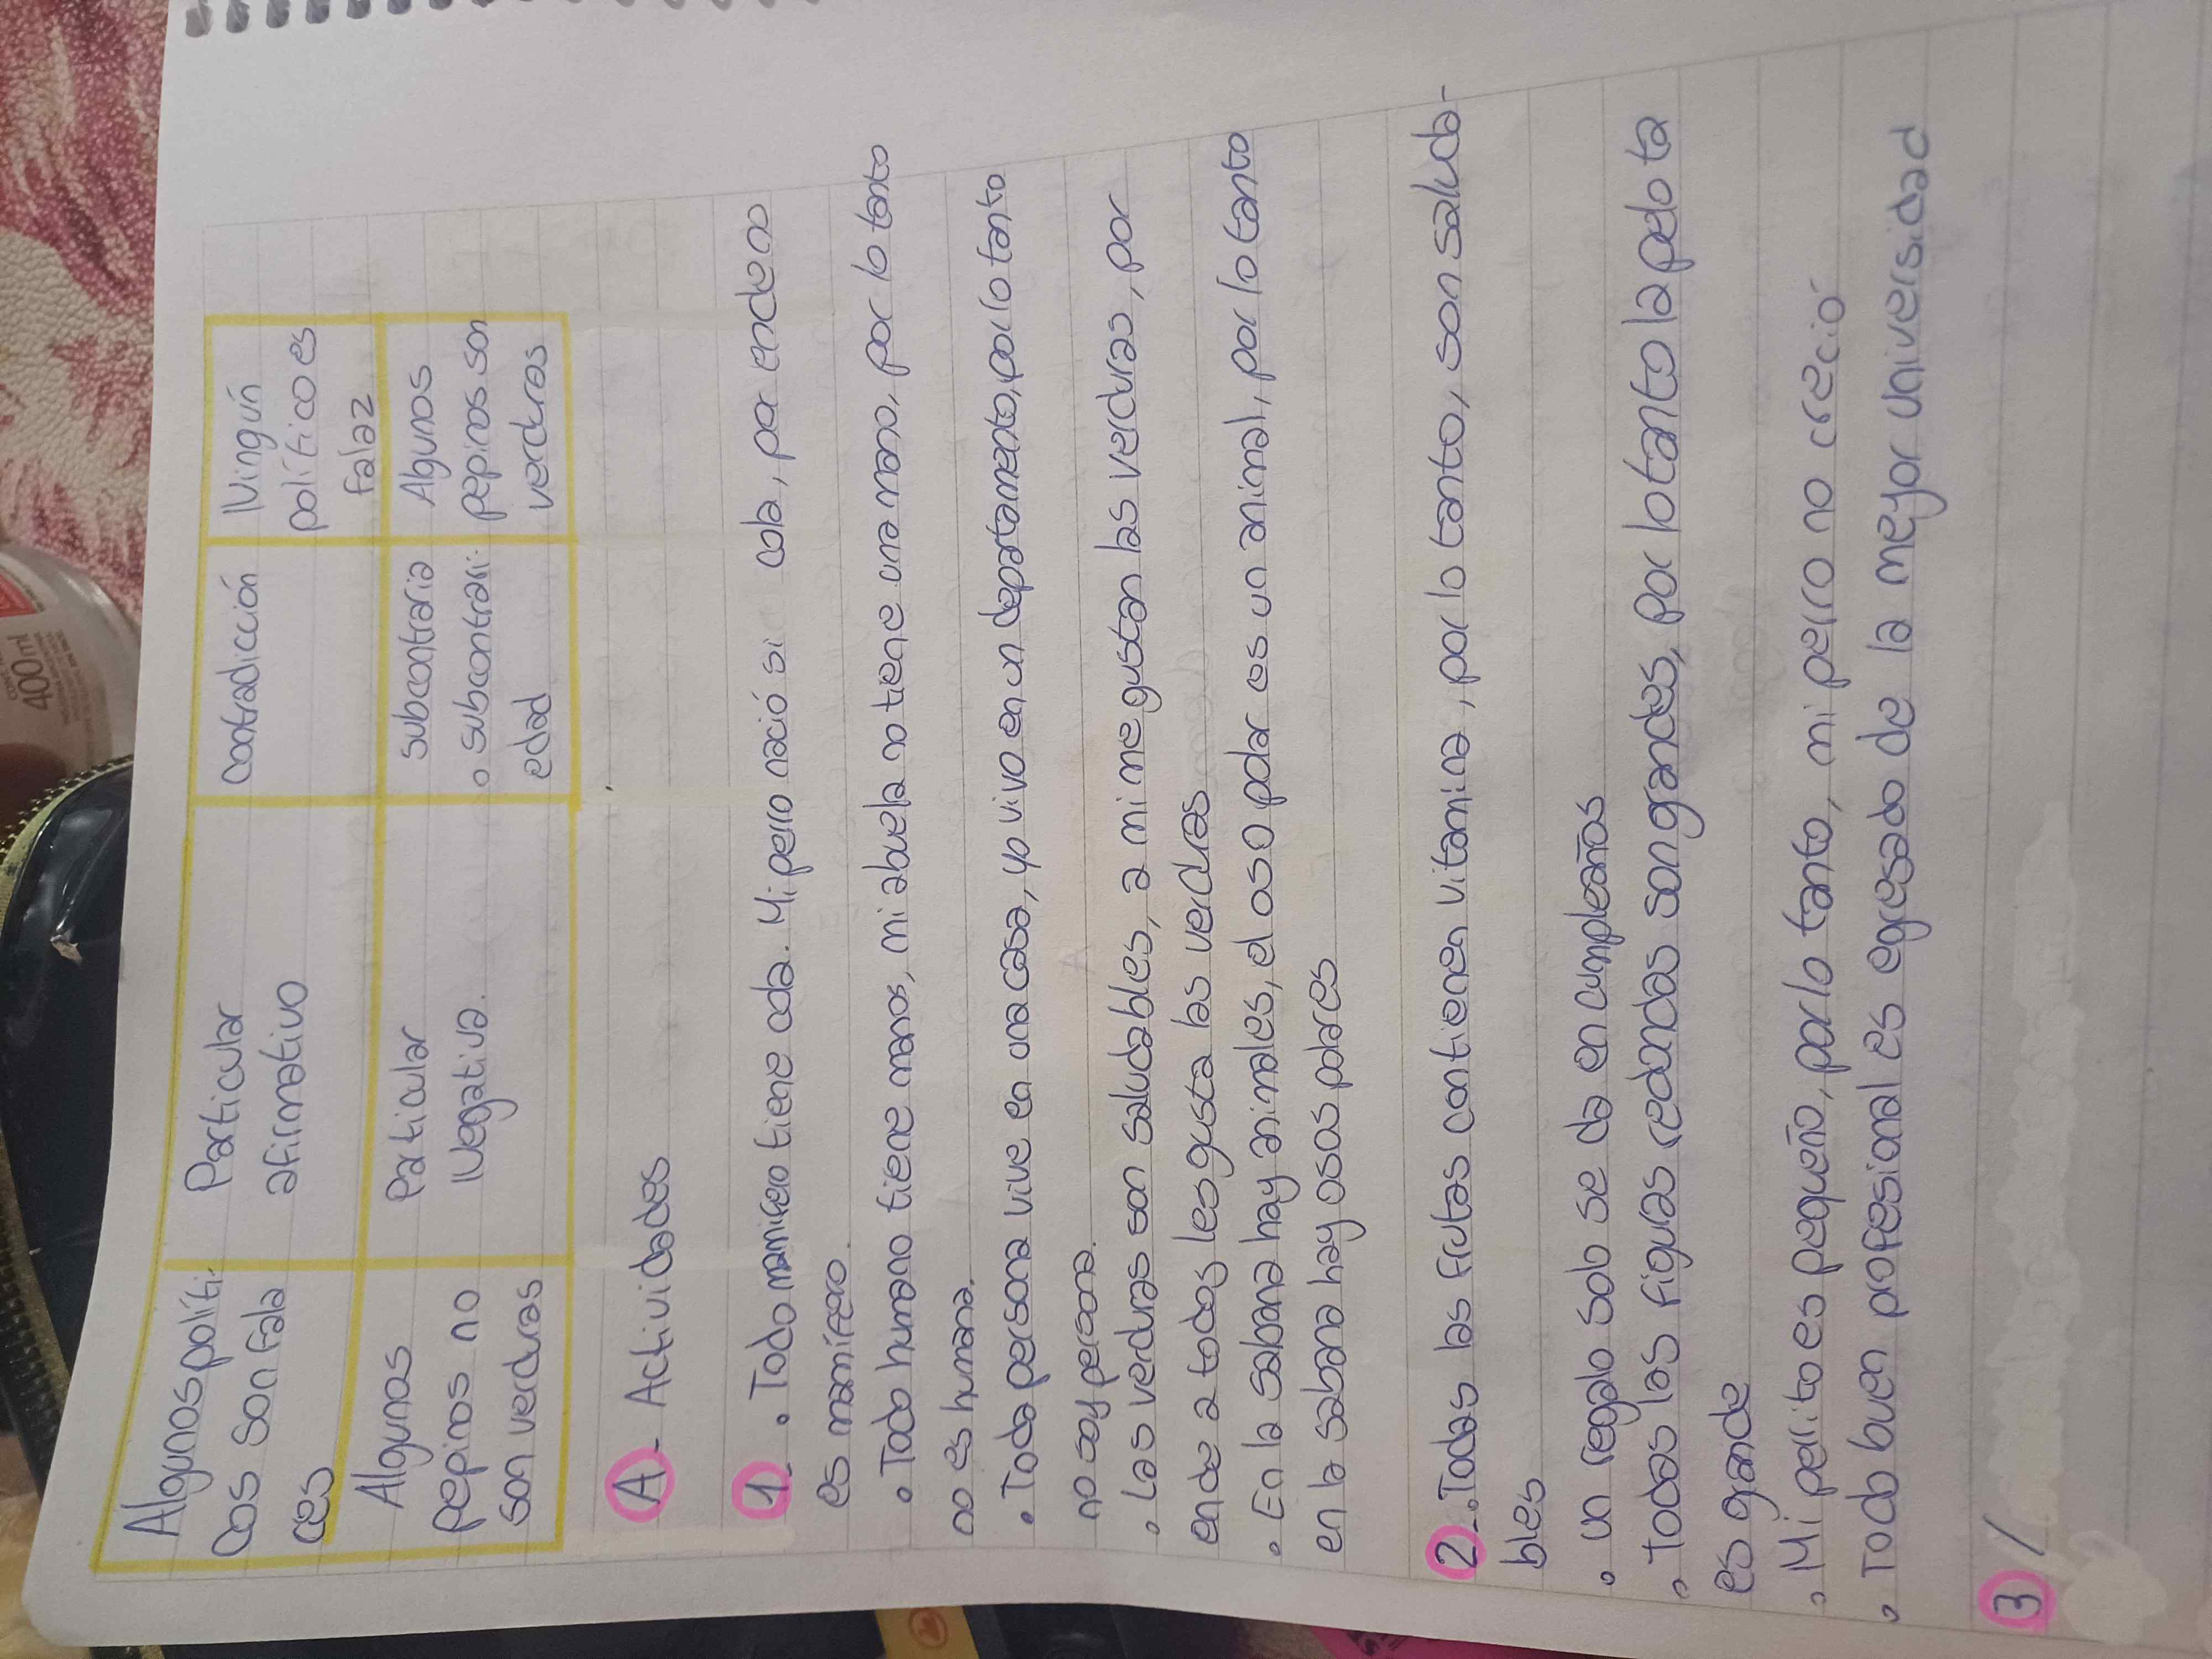 Algunos políti-
cos son fala
ces
Particular
afirmativo
contradicción
Ningún
político es
falaz
Algunos
pepinos no
son verduras
Particular
Negativa.
subcontraria
o subcontrari-
edad
Algunos
pepinos son
verduras
A - Actividades
1- • Todo mamifero tiene cola. Mi perro nació si cola, por ende no
es mamífero.
• Todo humano tiene manos, mi abuela no tiene una mano, por lo tanto
no es humana.
• Toda persona vive en una casa, yo vivo en un departamento, por lo tanto
no soy persona.
• Las verduras son saludables, a mi me gustan las verduras, por
ende a todos les gusta las verduras
• En la sabana hay animales, el oso polar es un animal, por lo tanto
en la sabana hay osos polares
2-. Todas las frutas contienen vitamina, por lo tanto, son saluda-
bles
• un regalo solo se da en cumpleaños
• Todas las figuras redondas son grandes, por lo tanto la pelota
es grande
• Mi perrito es pequeño, por lo tanto, mi perro no creció
• Todo buen profesional es egresado de la mejor universidad
3 /
400ml